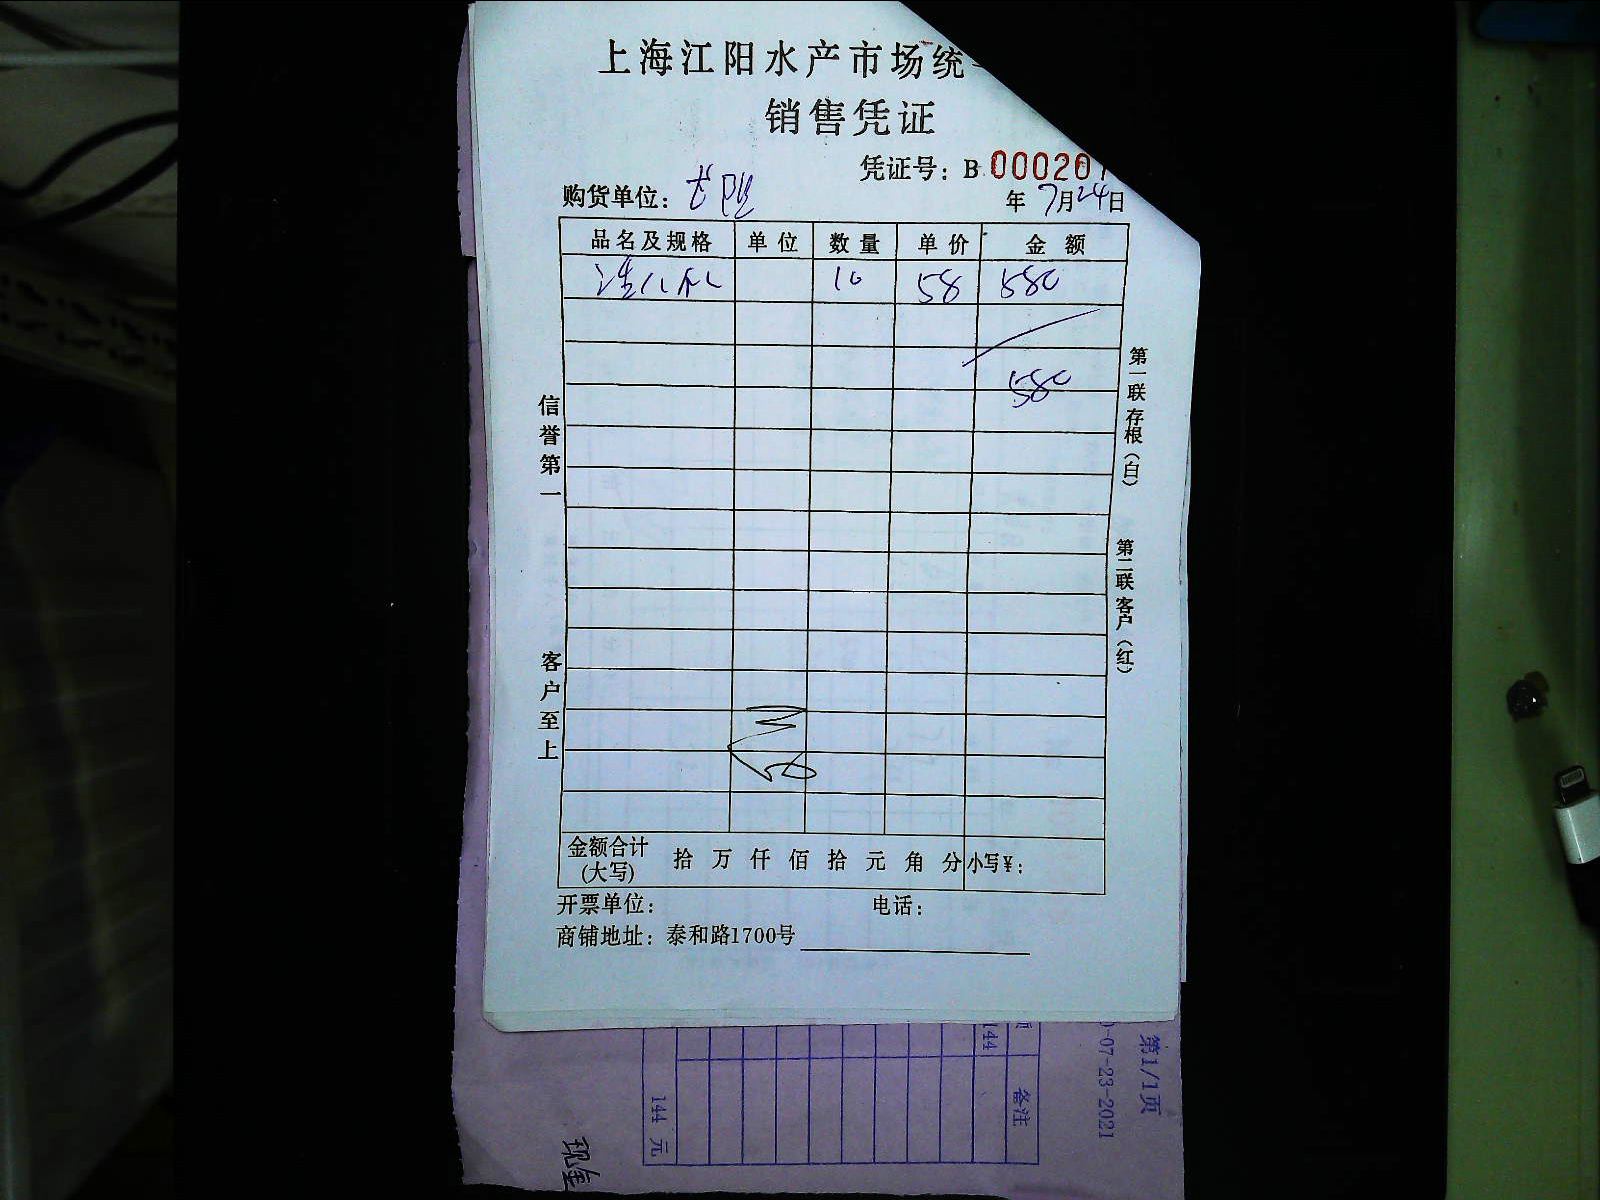 上海江阳水产市场统
销售凭证
凭证号：B 000201
购货单位： 年 7月24日
品名及规格 单位 数量 单价 金额
10 58 580
580
信誉第一
客户至上
第一联存根（白）
第二联客户（红）
金额合计(大写) 拾 万 仟 佰 拾 元 角 分 小写¥：
开票单位： 电话：
商铺地址：泰和路1700号
第1/1页
-07-23-2021
备注
144
144 元
现金